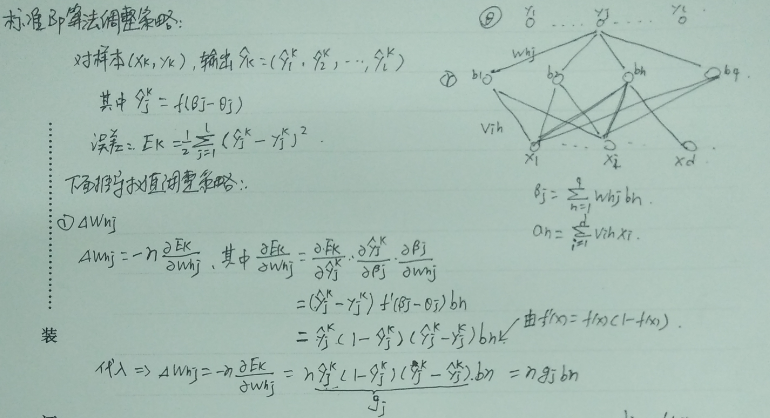 标准BP算法调整策略:
对样本(xk,yk),输出ŷk=(ŷ1^k,ŷ2^k,…,ŷl^k)
其中 ŷj^k=f(βj-θj)
误差: Ek=1/2 Σ_{j=1}^{l} (ŷj^k-yj^k)^2.
下面推导权值调整策略:
① ΔWhj
ΔWhj=-η ∂Ek/∂Whj, 其中 ∂Ek/∂Whj = ∂Ek/∂ŷj^k · ∂ŷj^k/∂βj · ∂βj/∂Whj
=(ŷj^k-yj^k) f'(βj-θj) bh
=ŷj^k (1-ŷj^k)(ŷj^k-yj^k) bh 由f'(x)=f(x)(1-f(x)).
代入 => ΔWhj=-η ∂Ek/∂Whj = η ŷj^k (1-ŷj^k)(yj^k-ŷj^k).bh = η gj bh
gj
装
θ y1 … yj … yl
Whj
b1 b2 bh bq
Vih
x1 xi xd
βj=Σ_{h=1}^{q} Whj bh.
αh=Σ_{i=1}^{d} Vih xi.